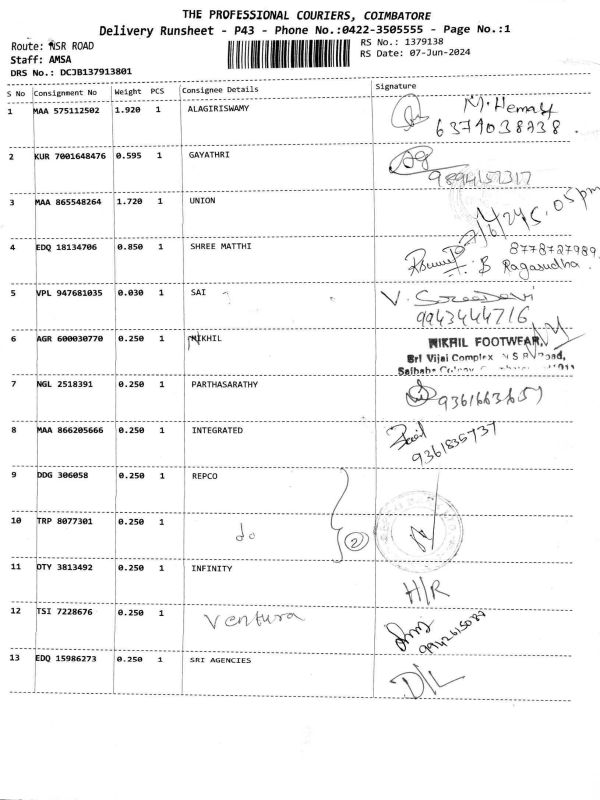 THE PROFESSIONAL COURIERS, COIMBATORE
Delivery Runsheet - P43 - Phone No.:0422-3505555 - Page No.:1
Route: NSR ROAD
RS No.: 1379138
Staff: AMSA
RS Date: 07-Jun-2024
DRS No.: DCJB137913801
S No Consignment No Weight PCS Consignee Details Signature
1 MAA 575112502 1.920 1 ALAGIRISWAMY
2 KUR 7001648476 0.595 1 GAYATHRI
3 MAA 865548264 1.720 1 UNION 5.05 pm
4 EDQ 18134706 0.850 1 SHREE MATTHI 8778727989
B Ragasudha.
5 VPL 947681035 0.030 1 SAI V. Sreedevi
9943444716
6 AGR 600030770 0.250 1 NIKHIL NIKHIL FOOTWEAR,
Sri Vijai Complex N S R Road,
Saibaba
7 NGL 2518391 0.250 1 PARTHASARATHY
8 MAA 866205666 0.250 1 INTEGRATED 9361835737
9 DDG 306058 0.250 1 REPCO
10 TRP 8077301 0.250 1 do 2
11 OTY 3813492 0.250 1 INFINITY H/R
12 TSI 7228676 0.250 1 Ventura
13 EDQ 15986273 0.250 1 SRI AGENCIES D/L